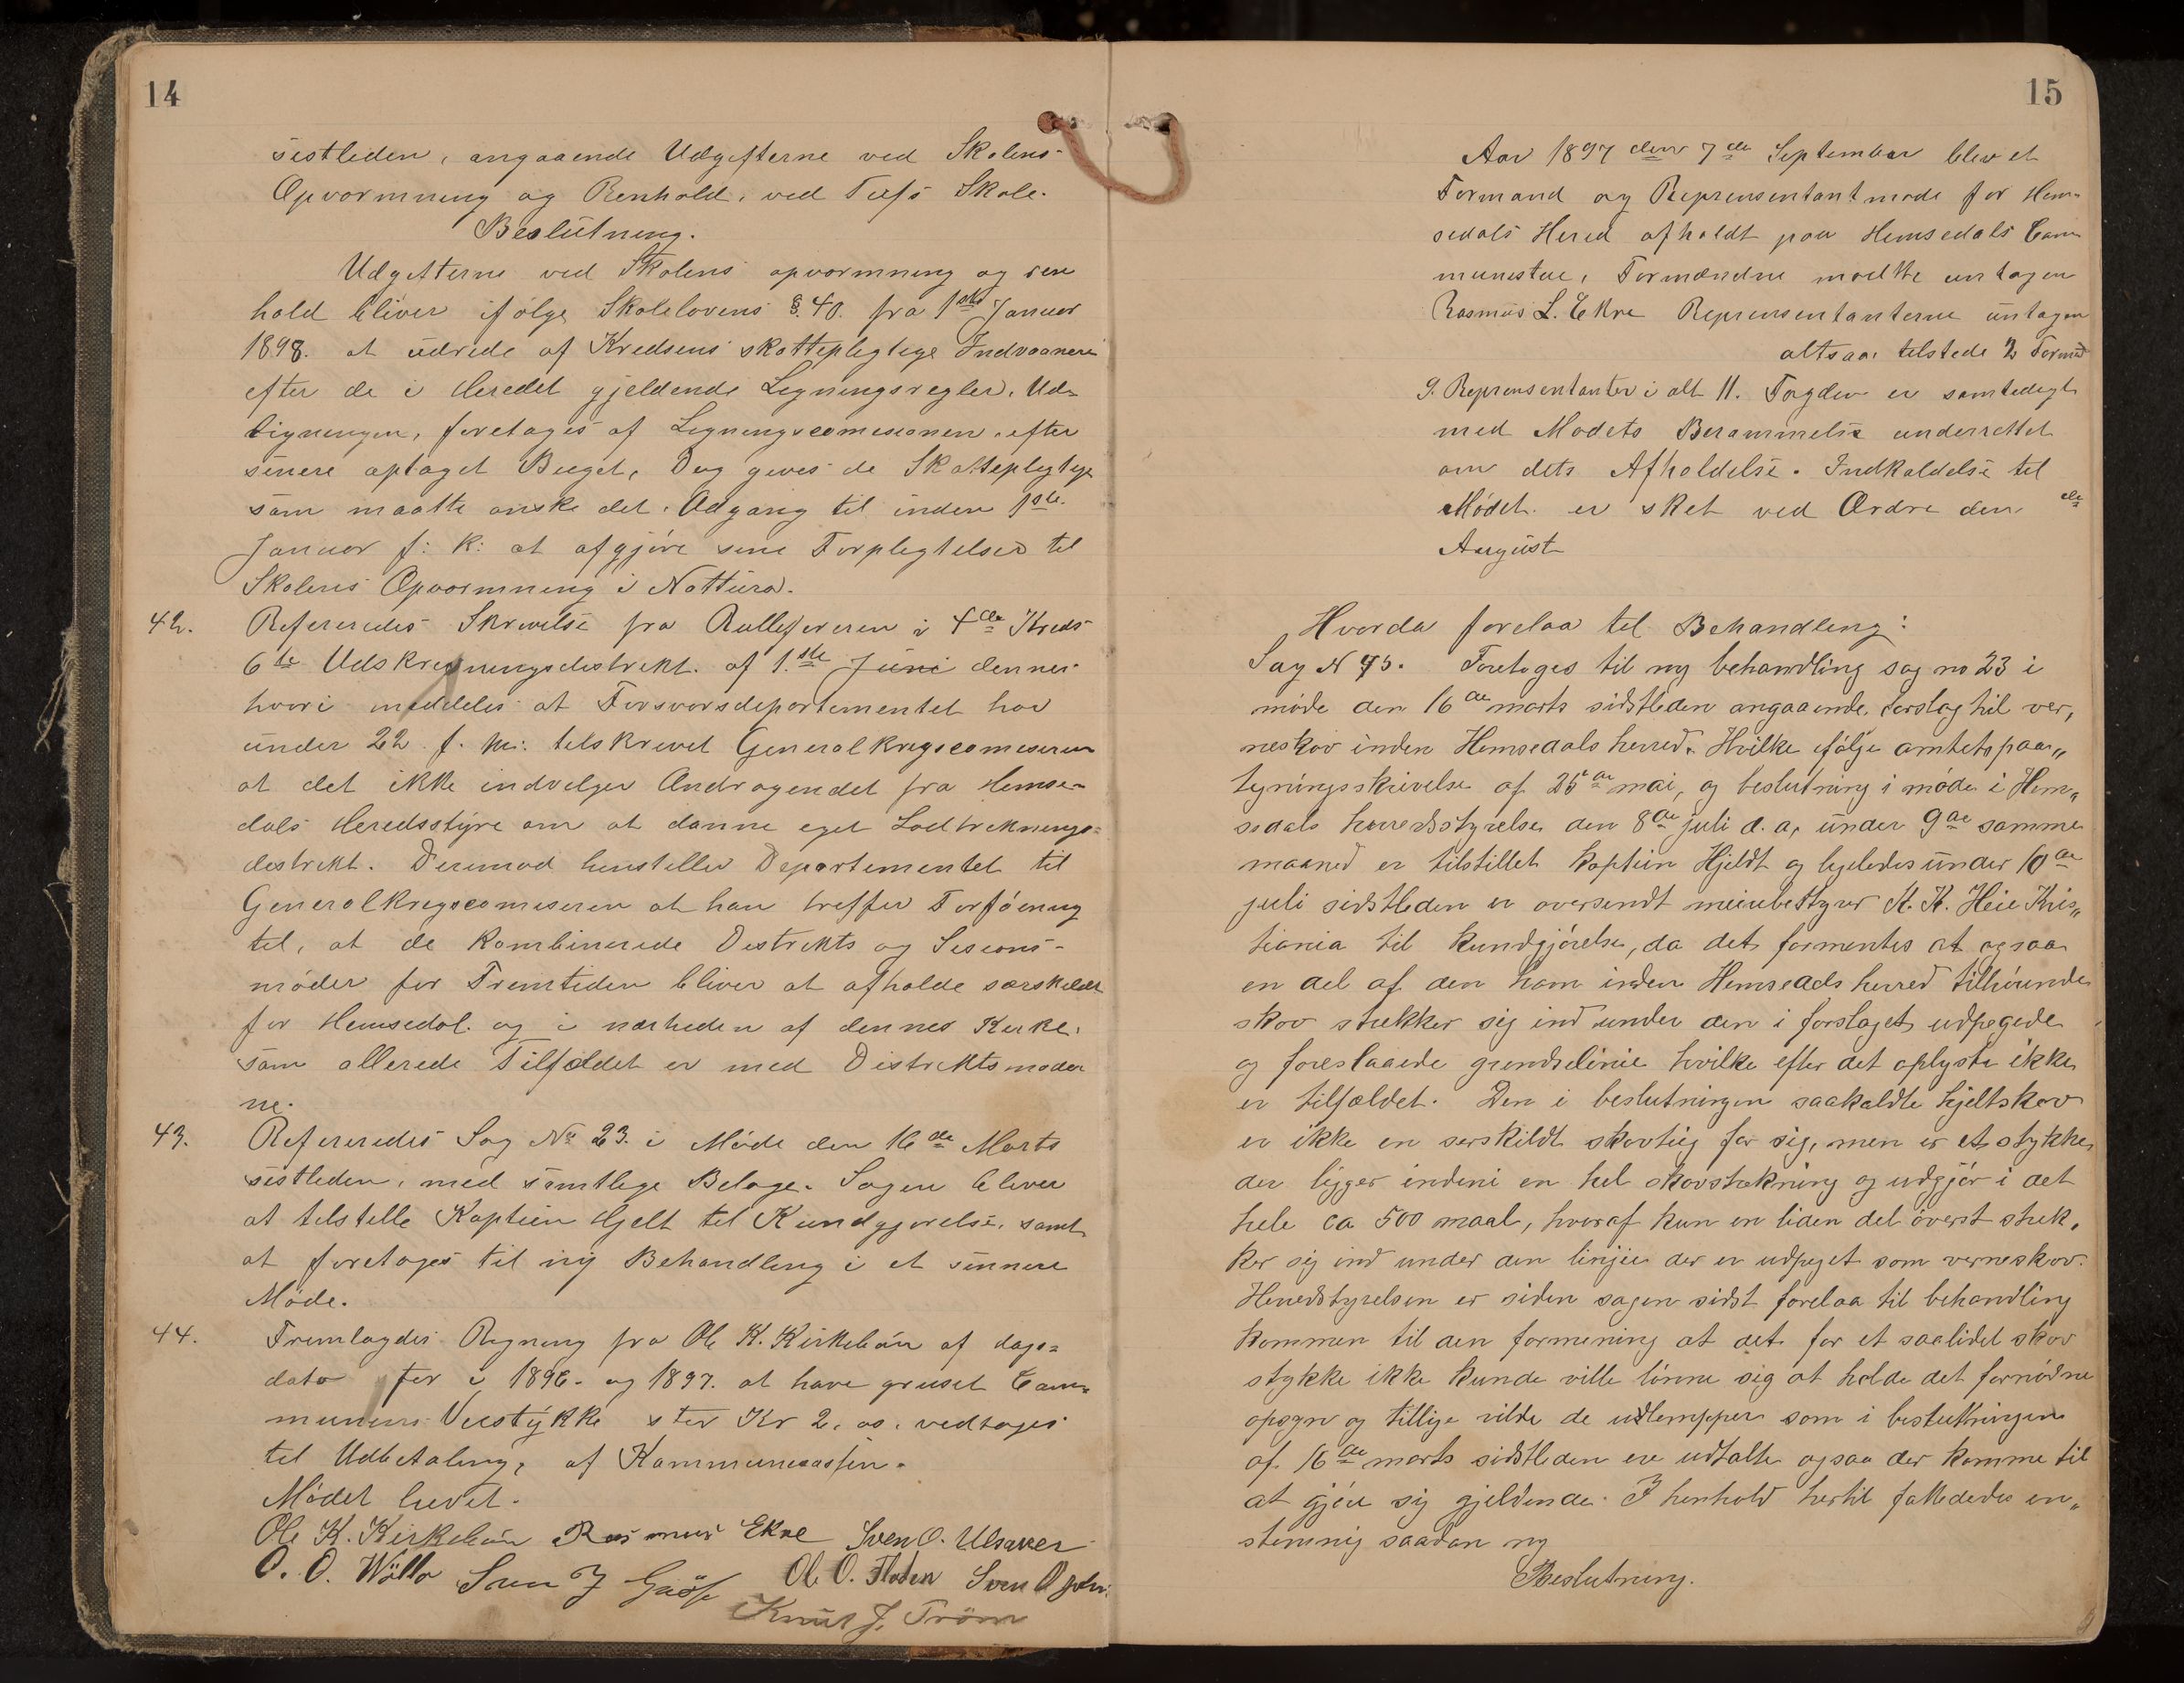 14
sestleden, angaaende Udgefterne ved Skolens-
Opvormning og Renhold, ved Tufs Skole.
Beslutning.
Udgefterne ved Skolens opvormning og ren
hold bliver ifølge Skolelovens §. 40. fra 1ste Januer
1898. at udrede af Kredsens skattepligtige Indvaanere
efter de i Heredet gjeldende Legningsregler. Ud-
ligningen, foretages af Legningscomesionen, efter
senere optaget Buget, Dog geves de Skattepligtige
som maatte ønske det. Adgang til inden 1ste
Januar f: k: at afgjøre sene Forplegtelser til
Skolens Opvormning i Nattura.
42. Refereredes Skrevelse fra Rulleføreren i 4de Kreds
6te Udskrevningsdestrekt. af 1.ste Juni dennes
hvori meddeles at Forsvarsdepartementet har
under 22. f. m: telskrevet Generalkregscomeseren
at det ikke indvelger Andragendet fra Hemse-
dals Heredsstyre om at danne eget Lodtreknings-
destrekt. Derimod henstiller Departementet til
Generalkregscomeseren at han treffer Forføening
tel, at de kombinerede Destrekts og Sesions-
møder for Fremtiden bliver at afholde særskeldt
for Hemsedal. og i nærheden af dennes Kerke,
som allerede Tilfældet er med Distrektsmøder
ne.
43. Refereredes Sag No 23. i Møde den 16de Marts
sestleden, med samtlege Belage. Sagen blever
at telstelle Kaptein Hjelt tel Kundgjørelse. samt
at foretages til ny Behandleng i et sennere
Møde.
44. Fremlagdes Regning fra Ole K. Kirkebøn af dags-
dato for i 1896- og 1897. at have gruset Com-
munens Veestykke stor Kr 2, 00. vedtoges
tel Udbetaleng, af Kommunecassen.
Mødet hevet.
Ole K. Kirkebøn Rasmus Ekre Sven O. Ulsaker
O. O. Wøllo Sven J Ole O. Floten Sven O
Knut J. Trøm
15
Aar 1897 den 7de September blev et
Formand og Reprensentantmøde for Hem-
sedals Hered afholdt paa Hemsedals Com
munestue, Formændne mødte untagen
Rasmus L. Ekre Reprensentanterne untagen
altsaa telstede 2 Formd
9. Reprensentanter i alt 11. Fogden er samtedegt
med Mødets Berammelse underrettet
om dets Afholdelse. Indkaldelse tel
Mødet er sket ved Ordre den de
August
Hvorda forelaa tel Behandleng:
Sag N 45. Foretoges til ny behandling sag no 23 i
møde den 16de marts sidstleden angaaende forslag til ver,
neskov inden Hemsedals herred. Hvilke ifølge amtets paa„
tegningsskrivelse af 25de mai, og beslutning i møde i Hem„
sedals herredsstyrelse den 8de juli d. a, under 9de samme
maaned er tilstillet Kaptein Hjeldt og ligeledes under 10de
juli sidstleden er oversendt meiebestyrer K. K. Heie Kris„
tiania til kundgjørelse, da det formentes at ogsaa
en del af den ham inden Hemseads herred tilhørende
skov strekker sig ind under den i forslaget udpegede
og foreslaaede grendselinie hvilke efter det oplyste ikke
er tilfældet. Den i beslutningen saakaldte hjeltskov
er ikke en serskildt skovteig for sig, men er et stykke
der ligger indeni en hel skovstrekning og udgjør i det
hele ca 500 maal, hvoraf kun en liden del øverst strek,
ker sig ind under den linjen der er udpeget som verneskov.
Heredstyrelsen er siden sagen sidst forelaa til behandling
kommen til den formening at det for et saalidet skov
stykke ikke kunde ville lønne sig at holde det fornødne
opsyn og tillige vilde de udlemper som i beslutningen
af 16de marts sidstleden ere udtalte ogsaa der komme til
at gjøre sig gjeldende. I henhold hertil fattededes en„
stemmig saadan ny
Beslutning.